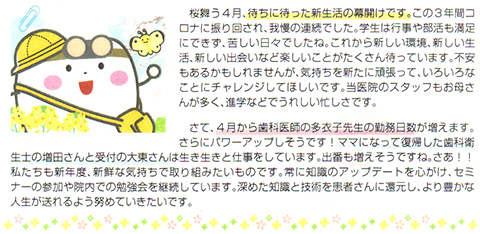 桜舞う４月、待ちに待った新生活の幕開けです。この３年間コ
ロナに振り回され、我慢の連続でした。学生は行事や部活も満足
にできず、苦しい日々でしたね。これから新しい環境、新しい生
活、新しい出会いなど楽しいことがたくさん待っています。不安
もあるかもしれませんが、気持ちを新たに頑張って、いろいろな
ことにチャレンジしてほしいです。当医院のスタッフもお母さ
んが多く、進学などでうれしい忙しさです。
さて、４月から歯科医師の多衣子先生の勤務日数が増えます。
さらにパワーアップしそうです！ママになって復帰した歯科衛
生士の増田さんと受付の大東さんは生き生きと仕事をしています。出番も増えそうですね。さあ！！
私たちも新年度、新鮮な気持ちで取り組みたいものです。常に知識のアップデートを心がけ、セミ
ナーの参加や院内での勉強会を継続しています。深めた知識と技術を患者さんに還元し、より豊かな
人生が送れるよう努めていきたいです。